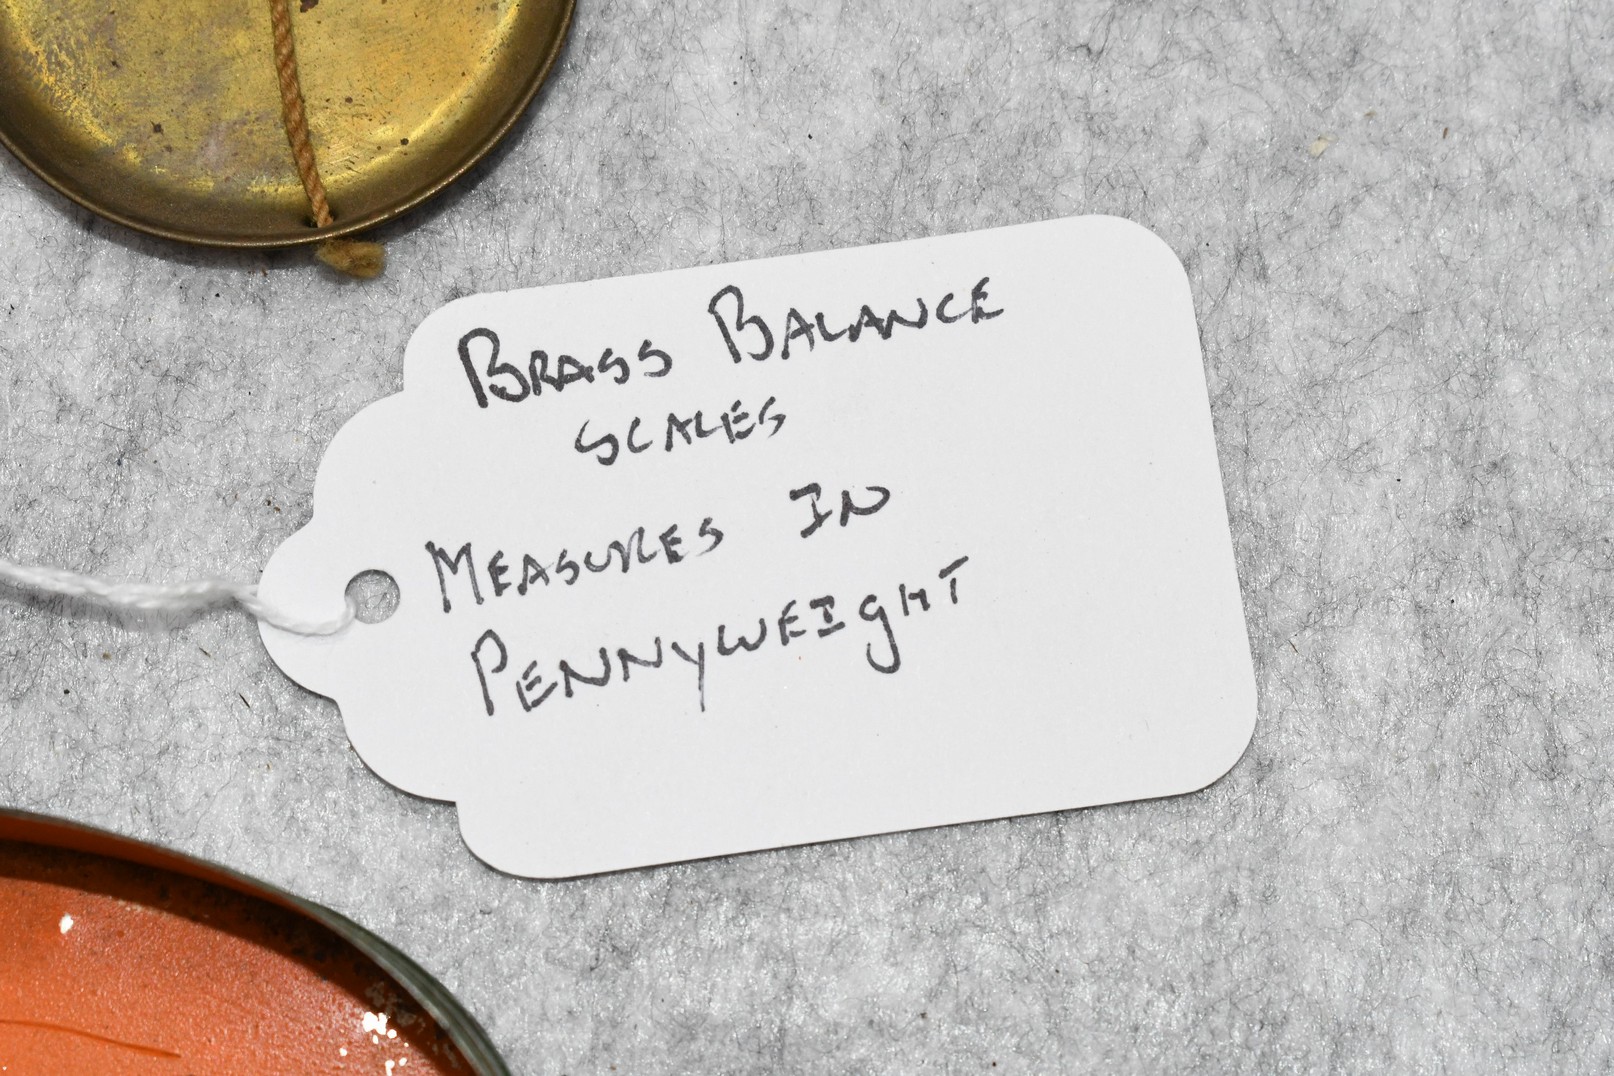 Brass Balance
Scales
Measures In
Pennyweight